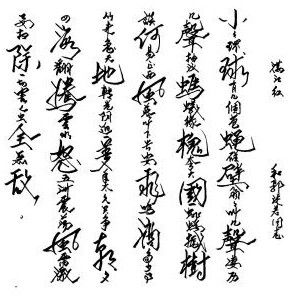 满江红 和郭沫若同志
小小环球有几個苍蝇碰壁嗡嗡叫几聲凄厉
几聲抽泣蚂蟻缘槐夸大國蚍蜉撼樹
谈何易正西風落叶下长安飛鸣镝多少事
从来急天地转光阴迫一万年太久只争朝夕
四海翻騰雲水怒五洲震荡風雷激
要扫除一切害人虫全无敌。